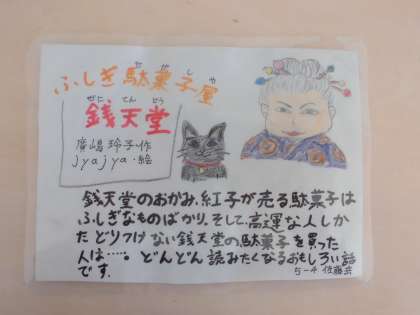 ふしぎ駄菓子屋
銭天堂
廣嶋玲子・作
jyajya・絵
銭天堂のおかみ、紅子が売る駄菓子は
ふしぎなものばかり。そして、高運な人しか
たどりつけない銭天堂の、駄菓子を買った
人は……。どんどん読みたくなるおもしろい話
です。
5-4 佐藤